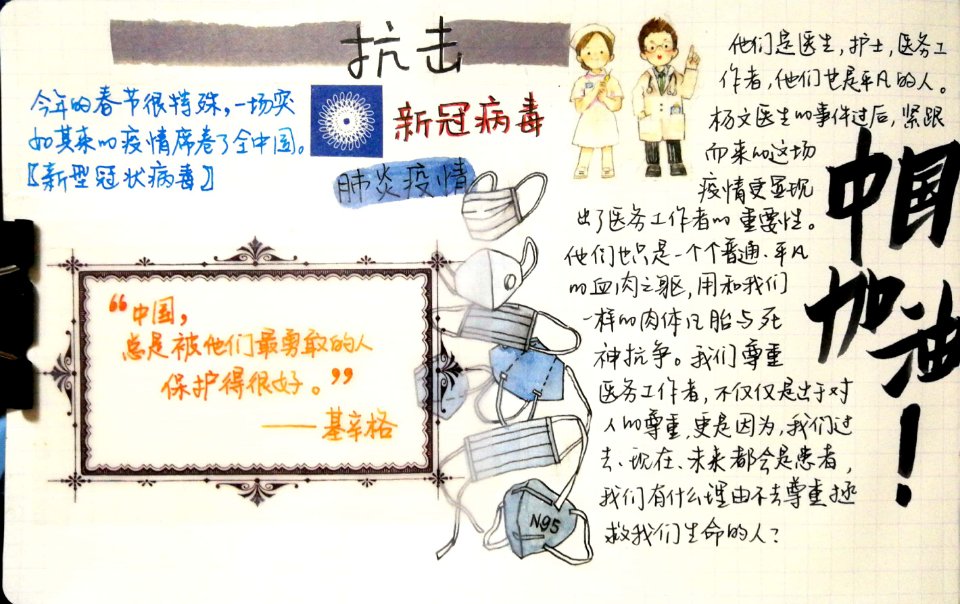 抗击
今年的春节很特殊，一场突
如其来的疫情席卷了全中国。
【新型冠状病毒】
新冠病毒
肺炎疫情
“中国，
总是被他们最勇敢的人
保护得很好。”
——基辛格
N95
他们是医生，护士，医务工
作者，他们也是平凡的人。
杨文医生的事件过后，紧跟
而来的这场
疫情更显现
出了医务工作者的重要性。
他们也只是一个个普通、平凡
的血肉之躯，用和我们
一样的肉体凡胎与死
神抗争。我们尊重
医务工作者，不仅仅是出于对
人的尊重，更是因为，我们过
去、现在、未来都会是患者，
我们有什么理由不去尊重拯
救我们生命的人？
中国
加油
！